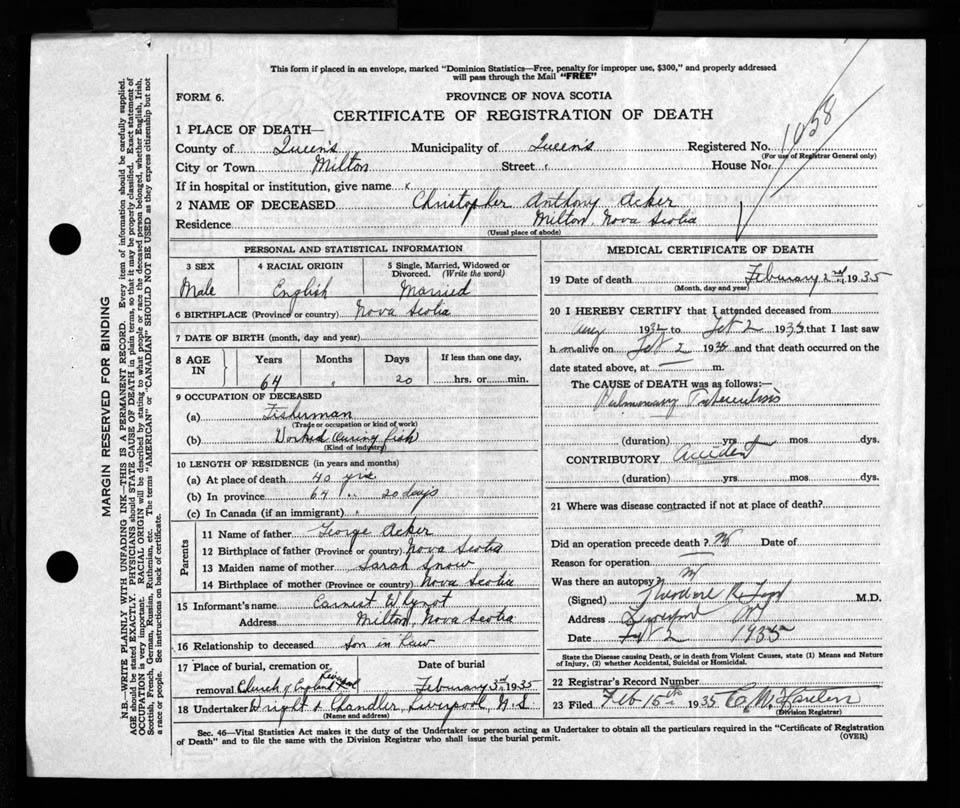 This form if placed in an envelope, marked "Dominion Statistics—Free, penalty for improper use, $300," and properly addressed
will pass through the Mail "FREE"
FORM 6.
PROVINCE OF NOVA SCOTIA
CERTIFICATE OF REGISTRATION OF DEATH
1 PLACE OF DEATH—
County of Queens Municipality of Queens Registered No. 1058
(For use of Registrar General only)
City or Town Milton Street House No.
If in hospital or institution, give name
2 NAME OF DECEASED Christopher Anthony Acker
Residence Milton, Nova Scotia
(Usual place of abode)
PERSONAL AND STATISTICAL INFORMATION
3 SEX 4 RACIAL ORIGIN 5 Single, Married, Widowed or
Divorced. (Write the word)
Male English Married
6 BIRTHPLACE (Province or country) Nova Scotia
7 DATE OF BIRTH (month, day and year)
8 AGE IN Years Months Days If less than one day,
64 " 20 hrs. or min.
9 OCCUPATION OF DECEASED
(a) Fisherman
(Trade or occupation or kind of work)
(b) Worked Curing fish
(Kind of industry)
10 LENGTH OF RESIDENCE (in years and months)
(a) At place of death 40 yrs
(b) In province 64 " 20 days
(c) In Canada (if an immigrant)
Parents
11 Name of father George Acker
12 Birthplace of father (Province or country) Nova Scotia
13 Maiden name of mother Sarah Snow
14 Birthplace of mother (Province or country) Nova Scotia
15 Informant's name Earnest Wynot
Address Milton, Nova Scotia
16 Relationship to deceased Son in Law
17 Place of burial, cremation or Date of burial
removal Church of England Liverpool February 3rd 1935
18 Undertaker Wright & Chandler, Liverpool, N.S
(Name and address)
MEDICAL CERTIFICATE OF DEATH
19 Date of death February 2nd 1935
(Month, day and year)
20 I HEREBY CERTIFY that I attended deceased from
Aug 1932 to Feb 2 1935 that I last saw
him alive on Feb 2 1935 and that death occurred on the
date stated above, at m.
The CAUSE of DEATH was as follows:—
Pulmonary Tuberculosis
(duration) yrs. mos. dys.
CONTRIBUTORY Accident
(duration) yrs. mos. dys.
21 Where was disease contracted if not at place of death?
Did an operation precede death? No Date of
Reason for operation
Was there an autopsy? No
(Signed) Theodore R Ford M.D.
Address Liverpool NS
Date Feb 2 1935
State the Disease causing Death, or in death from Violent Causes, state (1) Means and Nature
of Injury, (2) whether Accidental, Suicidal or Homicidal.
22 Registrar's Record Number
23 Filed Feb 15th 1935
(Division Registrar)
Sec. 46—Vital Statistics Act makes it the duty of the Undertaker or person acting as Undertaker to obtain all the particulars required in the "Certificate of Registration
of Death" and to file the same with the Division Registrar who shall issue the burial permit.
(OVER)
MARGIN RESERVED FOR BINDING
N.B.—WRITE PLAINLY WITH UNFADING INK—THIS IS A PERMANENT RECORD. Every item of information should be carefully supplied.
AGE should be stated EXACTLY. PHYSICIANS should STATE CAUSE OF DEATH in plain terms, so that it may be properly classified. Exact statement of
OCCUPATION is very important. RACIAL ORIGIN will be described by stating to what people or race the deceased person belonged, whether English, Irish,
Scottish, French, German, Russian, Ruthenian, etc. The terms "AMERICAN" or "CANADIAN" SHOULD NOT BE USED as they express citizenship but not
a race or people. See instructions on back of certificate.